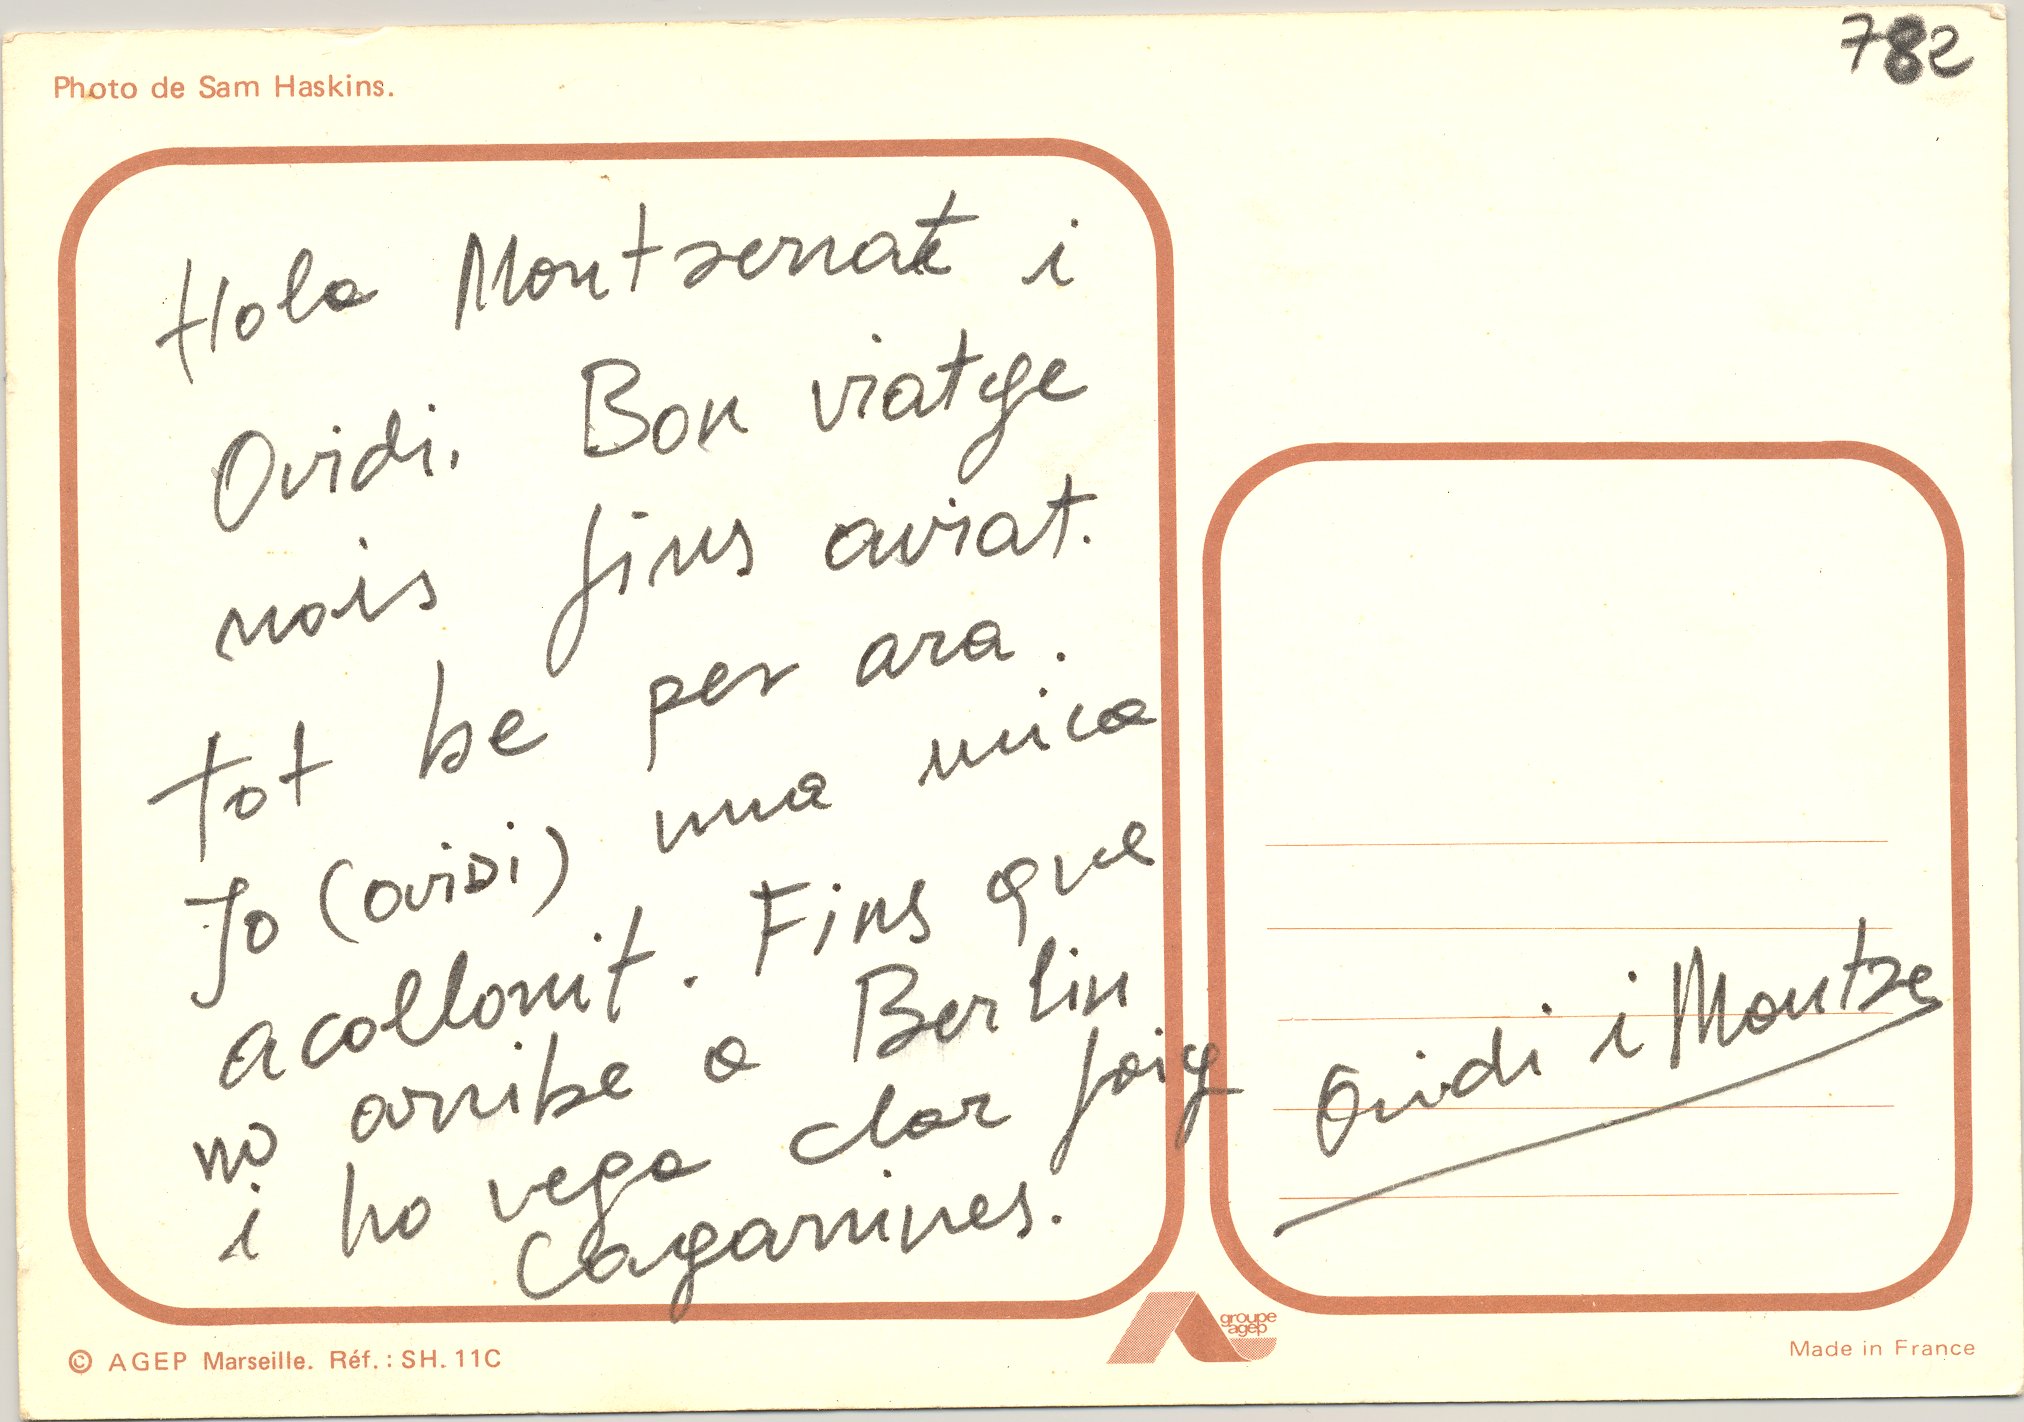 782
Photo de Sam Haskins.
Hola Montserrat i
Ovidi. Bon viatge
nois fins aviat.
tot be per ara.
Jo (oviDi) una mica
acollonit. Fins que
no arribe a Berlin
i ho vega clar faig
Cagarrines.
Ovidi i Montse
© AGEP Marseille. Réf. : SH. 11C
groupe
agep
Made in France